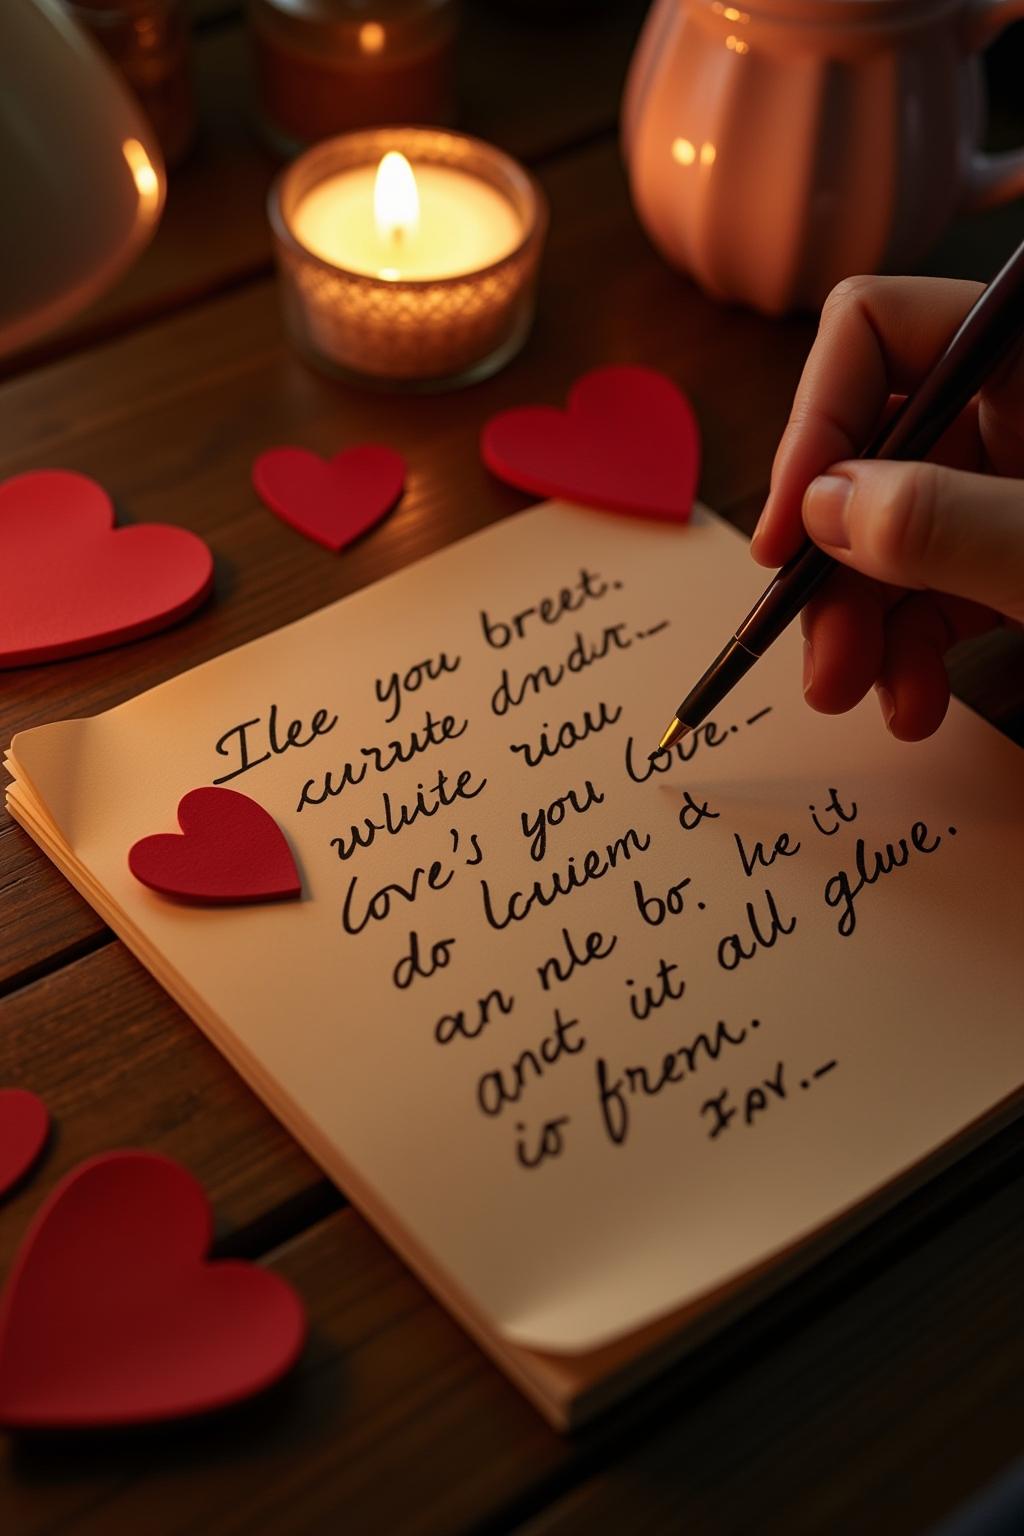 Ilee you breet.
curute dndır._
white riau
love's you love._
do lcuiem &
an nle bo. he it
and iut all glwe.
io frenu.